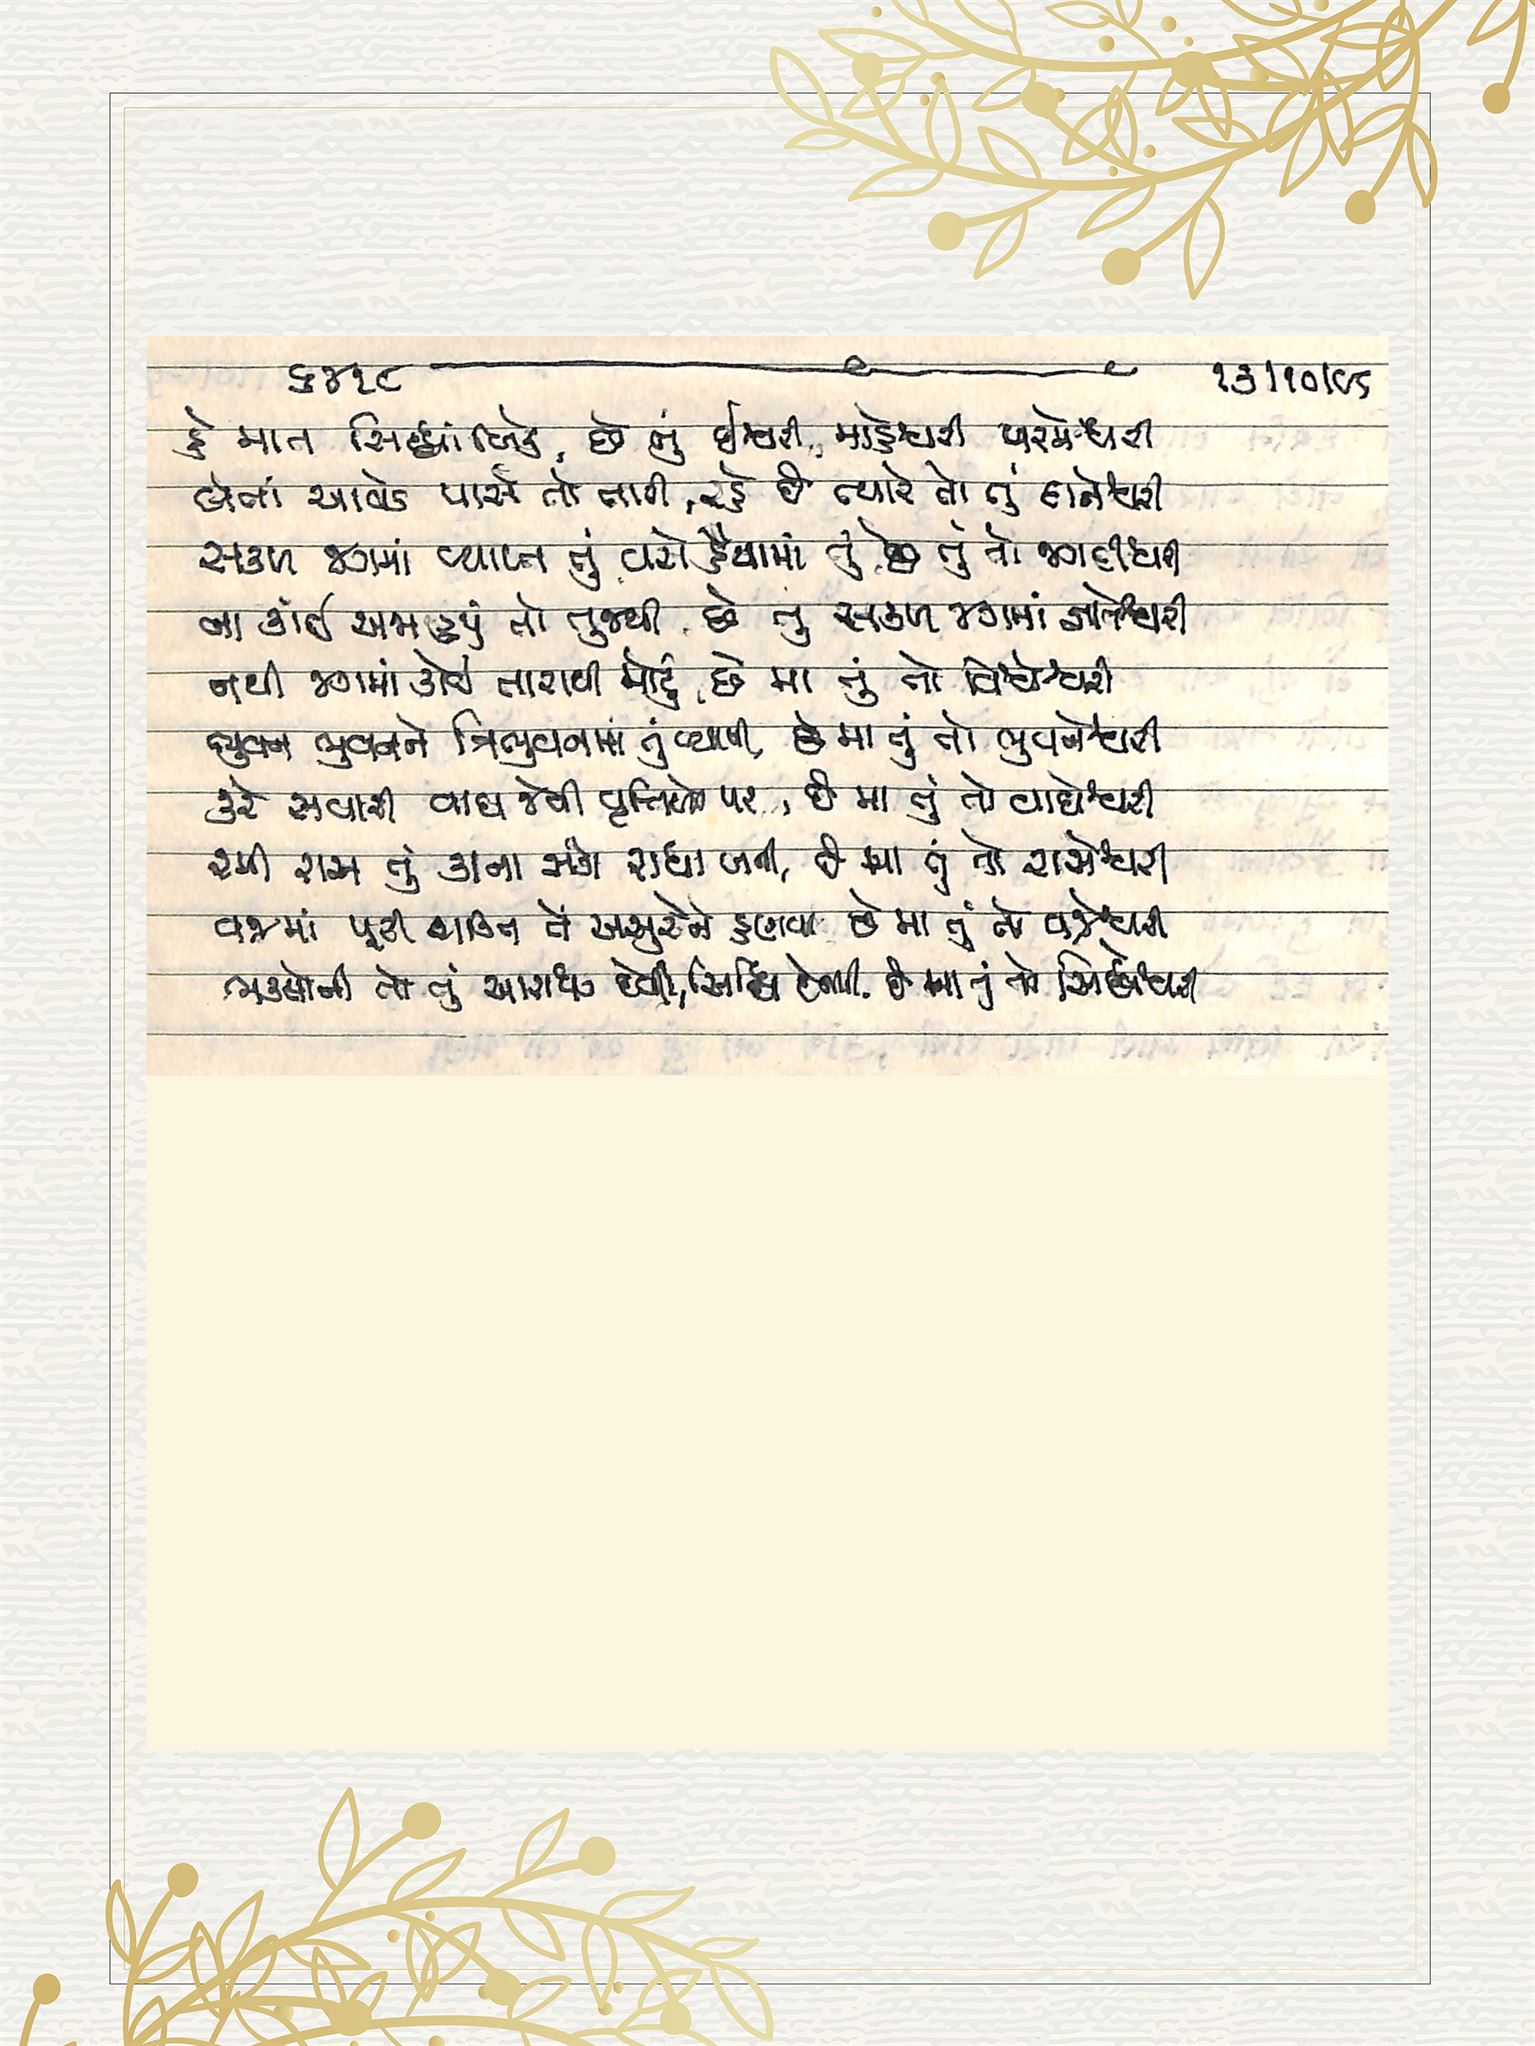 ૬૪૧૮ ૧૩/૧૦/૮૬
હે માત સિધ્ધાંબિકે, છે તું ઈશ્વરી, માહેશ્વરી પરમેશ્વરી
લેતાં આવડે પાસે તો તારી, રહે છે ત્યારે તો તું દાનેશ્વરી
સકળ જગમાં વ્યાપ્ત તું વસે હૈયામાં તું છે તું તો જગદીશ્વરી
ના કાંઈ અજાણ્યું તો તુજથી છે તુ સકળ જગમાં જ્ઞાનેશ્વરી
નથી જગમાં કોઈ તારાથી મોટું, છે મા તું તો વિશ્વેશ્વરી
ભુવન ભુવનને ત્રિભુવનમાં તું વ્યાપી, છે મા તું તો ભુવનેશ્વરી
કરે સવારી વાઘ જેવી વૃત્તિઓ પર, છે મા તું તો વાઘેશ્વરી
રમી રાસ તું કાના સંગે રાધા બની, છે મા તું તો રાસેશ્વરી
વજ્રમાં પૂરી શક્તિ તેં અસુરોને હણવા છે મા તું તો વજ્રેશ્વરી
ભક્તોની તો તું આરાધ્ય દેવી, સિધ્ધિ દેનારી. છે મા તું તો સિધ્ધેશ્વરી